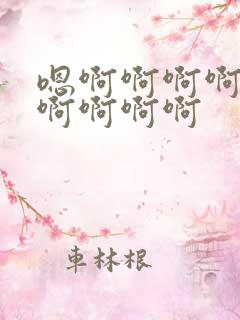 嗯啊啊啊啊
啊啊啊啊
車林根